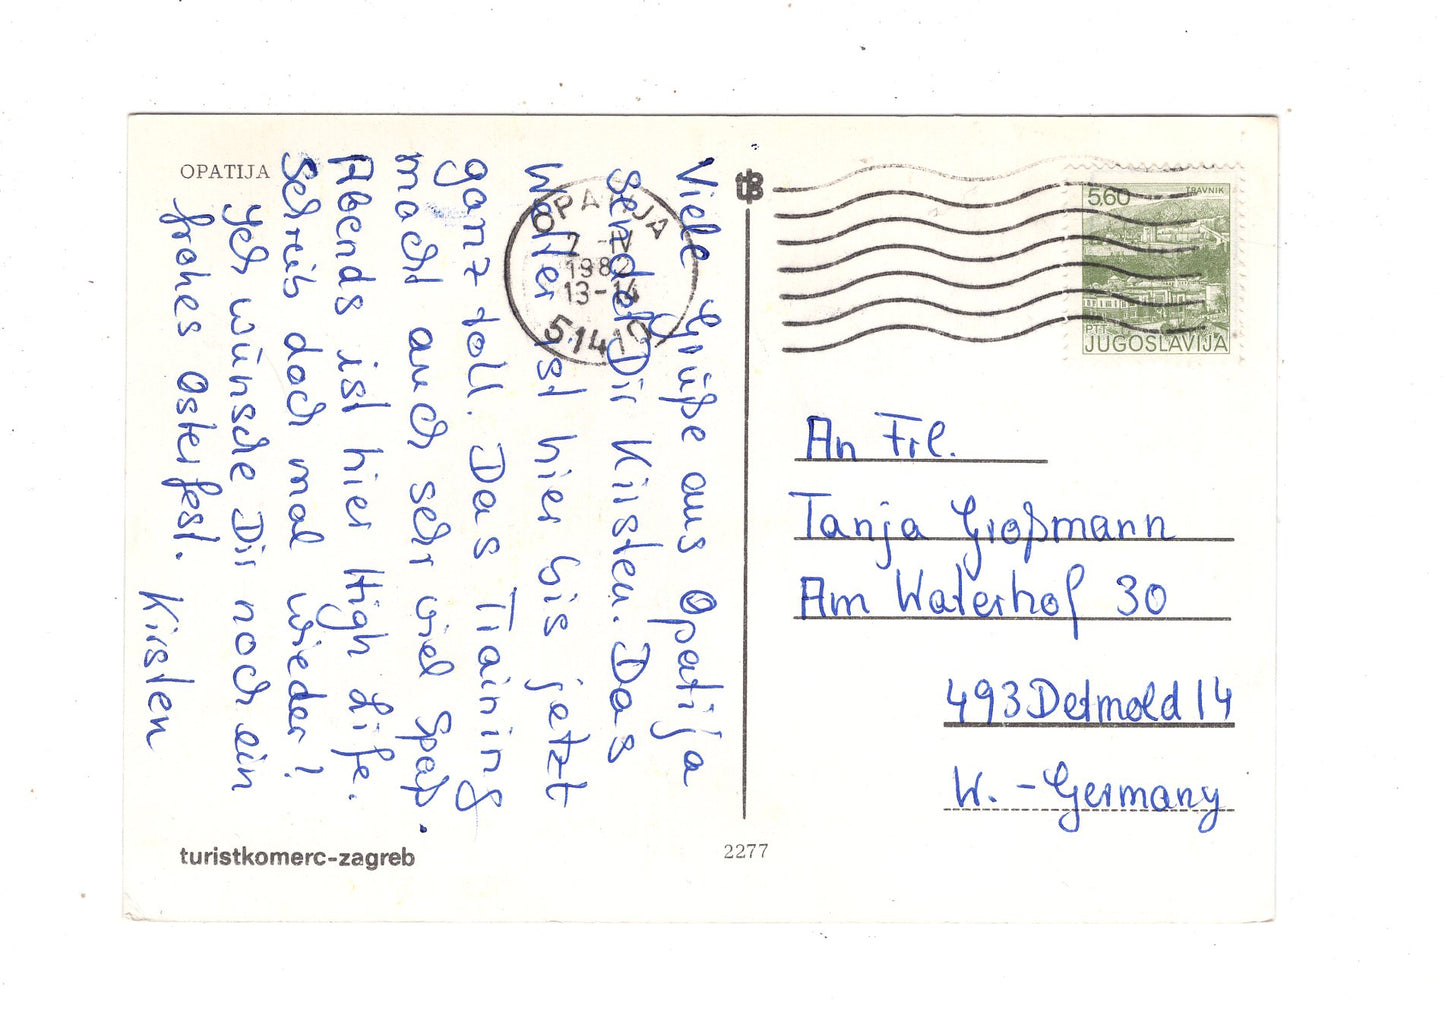 OPATIJA
Viele Grüße aus Opatija
sendet Dir Kirsten. Das
Wetter ist hier bis jetzt
ganz toll. Das Training
macht auch sehr viel Spaß.
Abends ist hier High Life.
Schreib doch mal wieder!
Ich wünsche Dir noch ein
frohes Osterfest.
Kirsten
turistkomerc-zagreb
2277
OPATIJA
2 -IV
1982
13-14
51410
5.60
TRAVNIK
PTT
JUGOSLAVIJA
An Frl.
Tanja Großmann
Am Waterhof 30
493 Detmold 14
W. - Germany